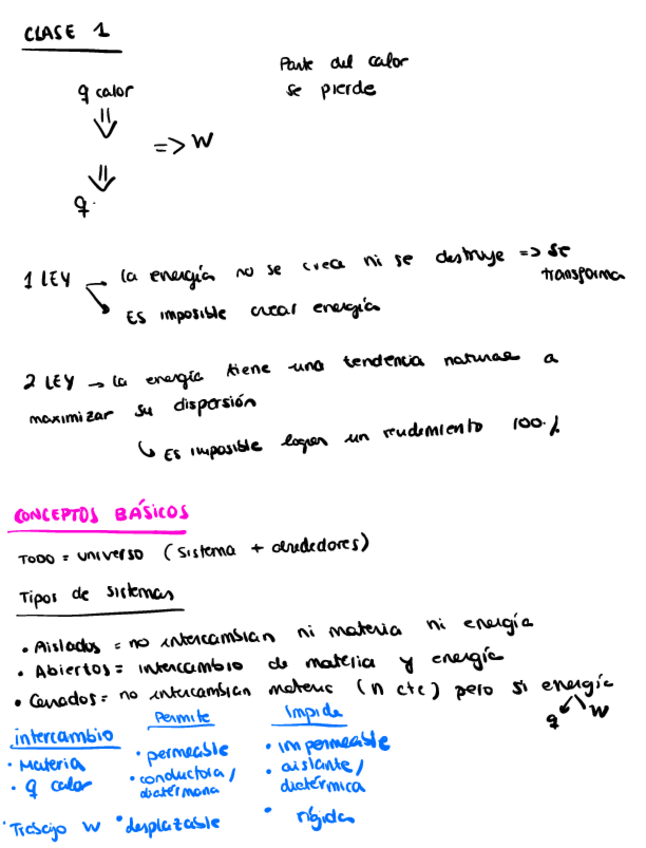 CLASE 1
Parte del calor
se pierde
q calor
⇓
=> W
⇓
q.
1 LEY → la energía no se crea ni se destruye => se
transforma
↘ Es imposible crear energía
2 LEY → la energía tiene una tendencia natural a
maximizar su dispersión
↳ Es imposible lograr un rendimiento 100%
CONCEPTOS BÁSICOS
TODO = universo (sistema + alrededores)
Tipos de sistemas
• Aislados = no intercambian ni materia ni energía
• Abiertos = intercambio de materia y energía
• Cerrados = no intercambian materia (n cte) pero si energía
q W
intercambio Permite Impide
• Materia • permeable • impermeable
• q calor • conductora / diatérmana • aislante / diatérmica
• Trabajo W • desplazable • rígida